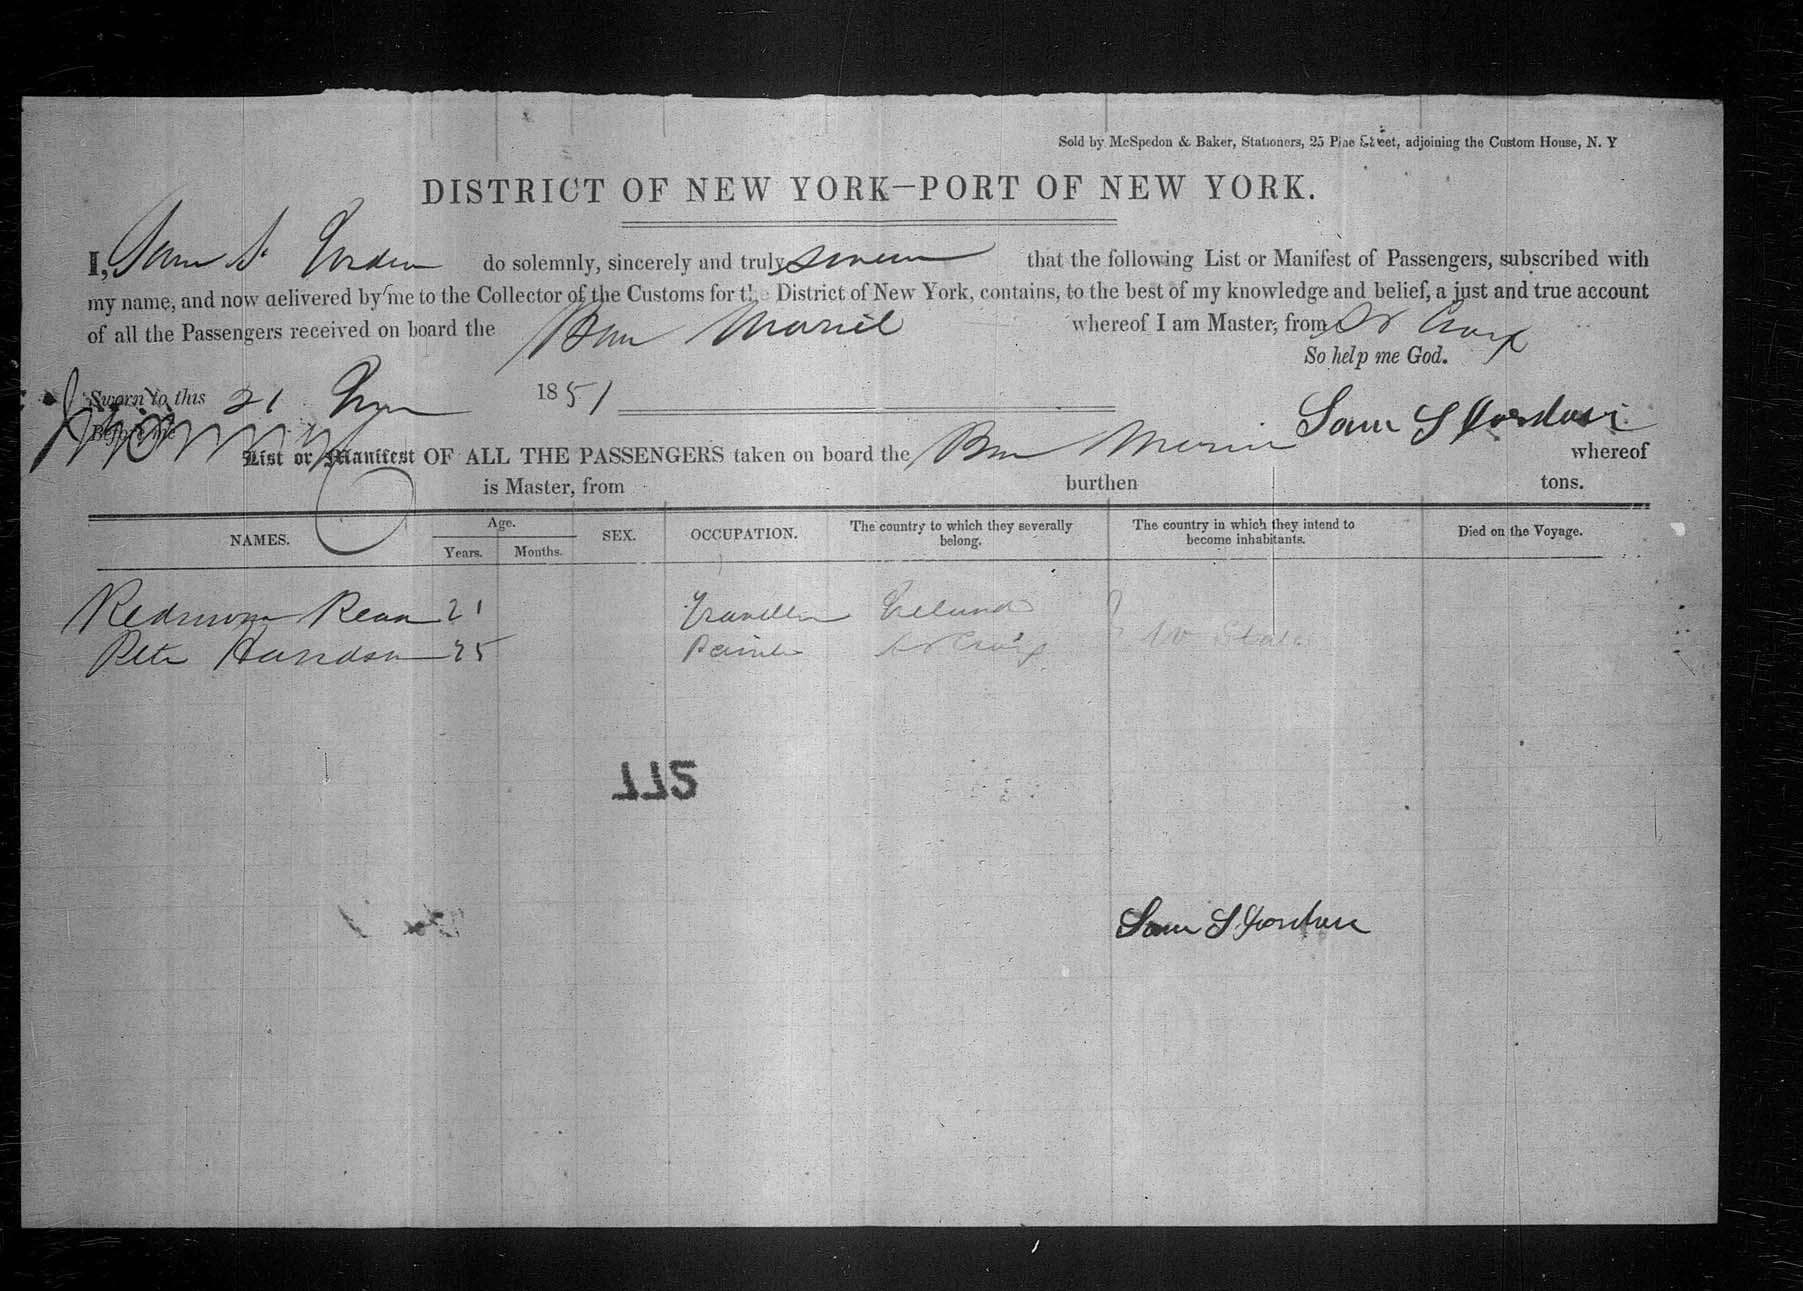 Sold by McSpedon & Baker, Stationers, 25 Pine Street, adjoining the Custom House, N. Y
DISTRICT OF NEW YORK—PORT OF NEW YORK.
I, Sam S. Gorden do solemnly, sincerely and truly swear that the following List or Manifest of Passengers, subscribed with
my name, and now delivered by me to the Collector of the Customs for the District of New York, contains, to the best of my knowledge and belief, a just and true account
of all the Passengers received on board the whereof I am Master, from St Croix
So help me God.
Sworn to this 21 1851
Before me
Sam S Gordon
List or Manifest OF ALL THE PASSENGERS taken on board the whereof
is Master, from burthen tons.
NAMES. Age. Years. Months. SEX. OCCUPATION. The country to which they severally belong. The country in which they intend to become inhabitants. Died on the Voyage.
21 Traveller Ireland
25 St Croix U States
112
Sam S. Gordon